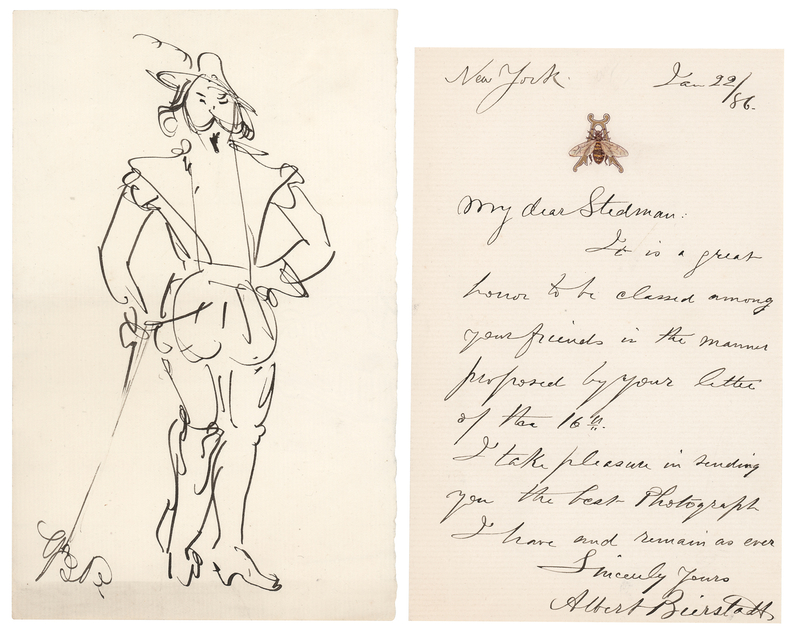 New York.
Jan 22/86.
My dear Stedman:
It is a great
honor to be classed among
your friends in the manner
proposed by your letter
of the 16th.
I take pleasure in sending
you the best Photograph
I have and remain as ever
Sincerely Yours
Albert Bierstadt